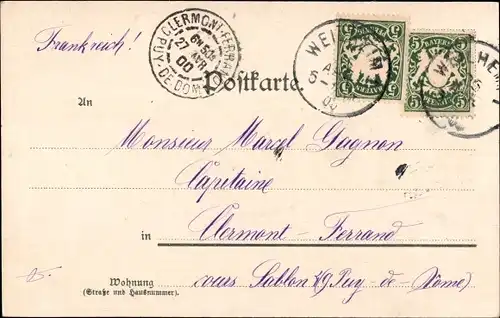 Frankreich!
CLERMONT-FERRAND
PUY-DE-DOME
27
00
BAYERN
5
BAYERN
5
Postkarte.
An
Monsieur Marcel Gagnon
Capitaine
in Clermont-Ferrand
Wohnung
(Straße und Hausnummer).
cours Sablon 49 Puy-de-Dôme)